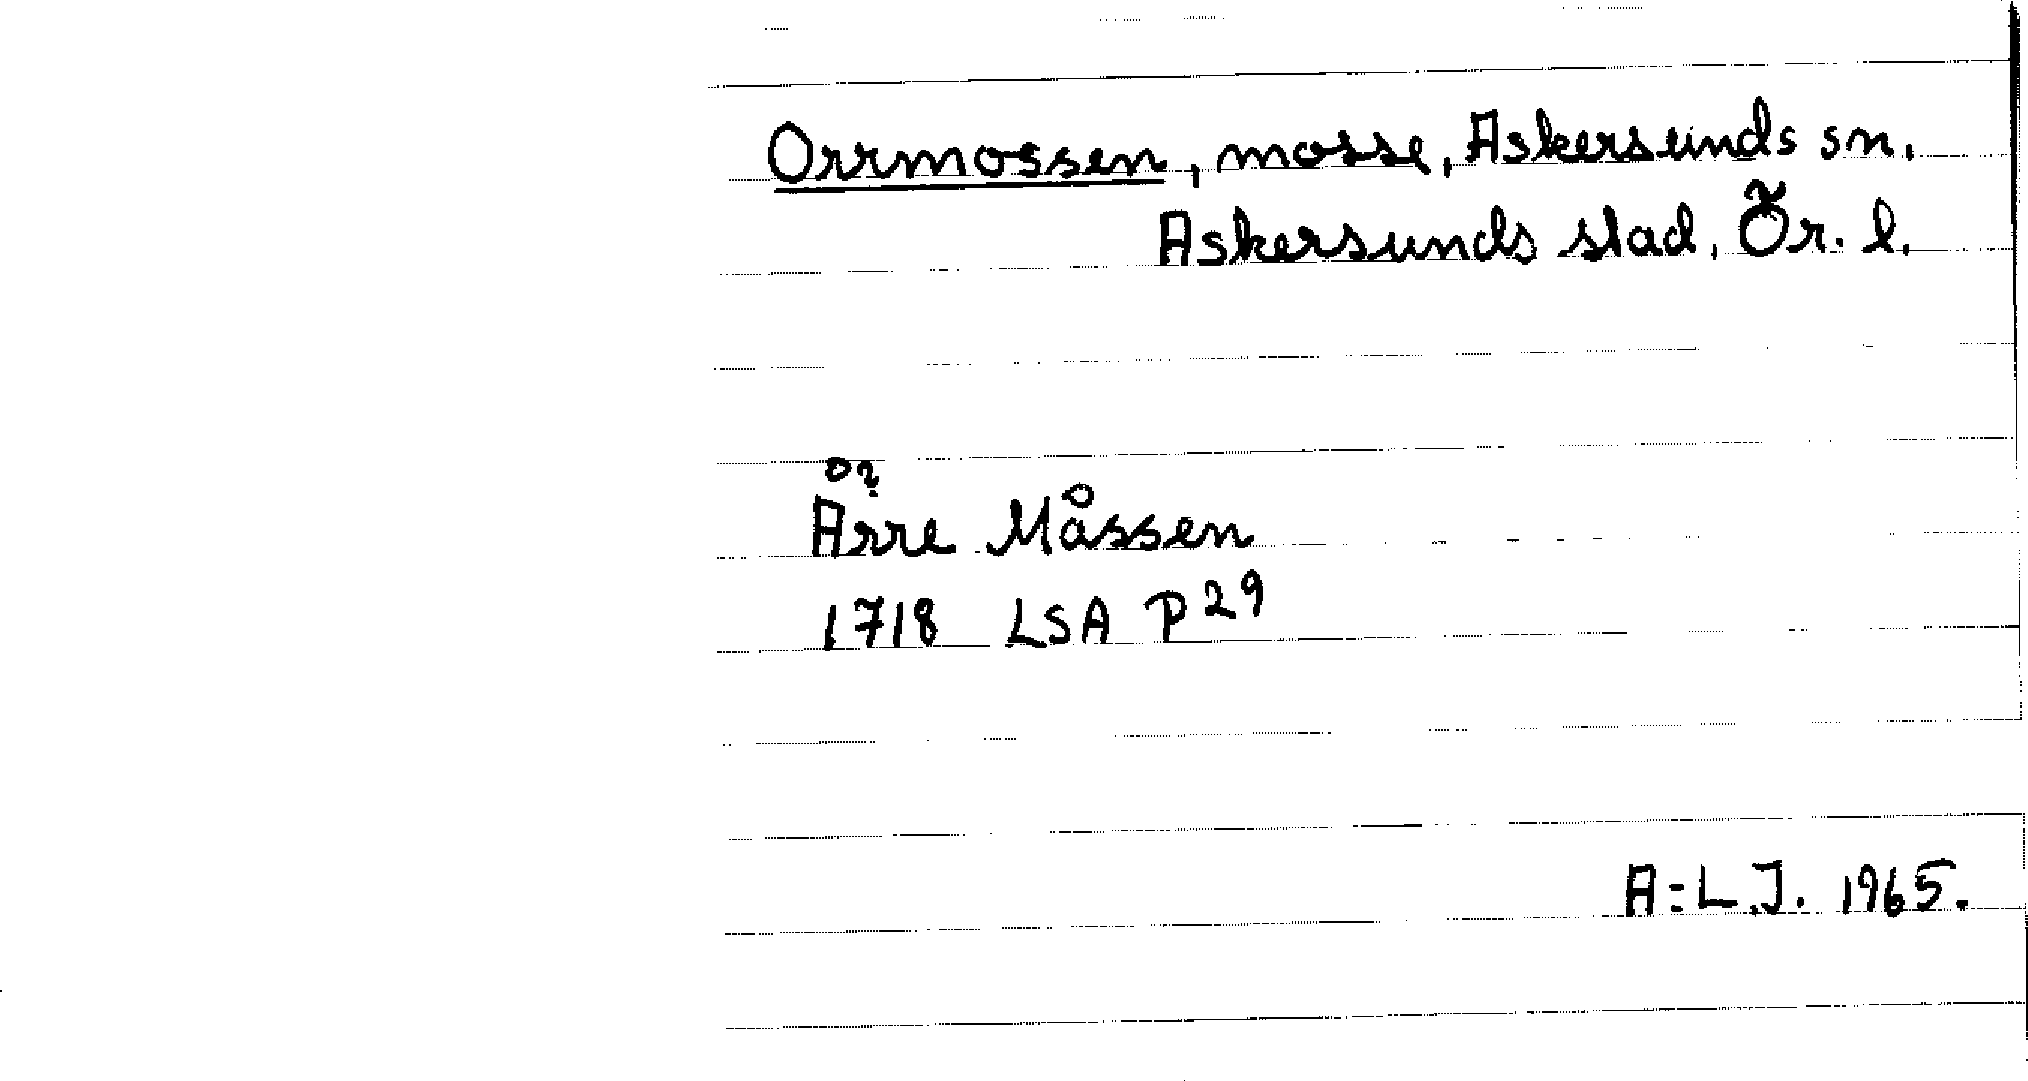 Orrmossen, mosse, Askersunds sn.
Askersunds stad, Ör. l.
Årre Måssen
1718 LSA P 29
A:L.J. 1965.